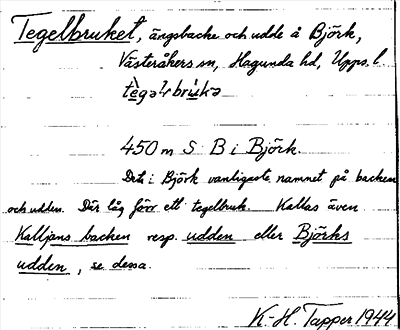 Tegelbruket, ängsbacke och udde å Björk,
Västeråkers sn, Hagunda hd, Upps. l.
450 m S B i Björk.
Det i Björk vanligaste namnet på backen
och udden. Där låg förr ett tegelbruk. Kallas även
Kalljans backen resp. udden eller Björks
udden, se dessa.
K-H. Tapper 1944